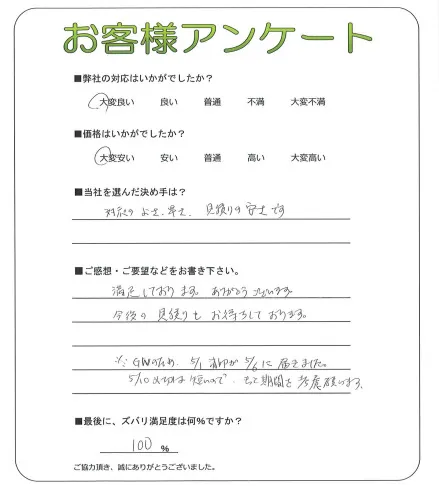 お客様アンケート
■弊社の対応はいかがでしたか?
大変良い 良い 普通 不満 大変不満
■価格はいかがでしたか?
大変安い 安い 普通 高い 大変高い
■当社を選んだ決め手は?
対応のよさ、早さ、見積りの安さです
■ご感想・ご要望などをお書き下さい。
満足しております。ありがとうございます。
今後の見積りもお待ちしております。
※GWのため、5/1 が5/6に届きました。
5/10 は短いので、 期間を考慮願います。
■最後に、ズバリ満足度は何%ですか?
100 %
ご協力頂き、誠にありがとうございました。